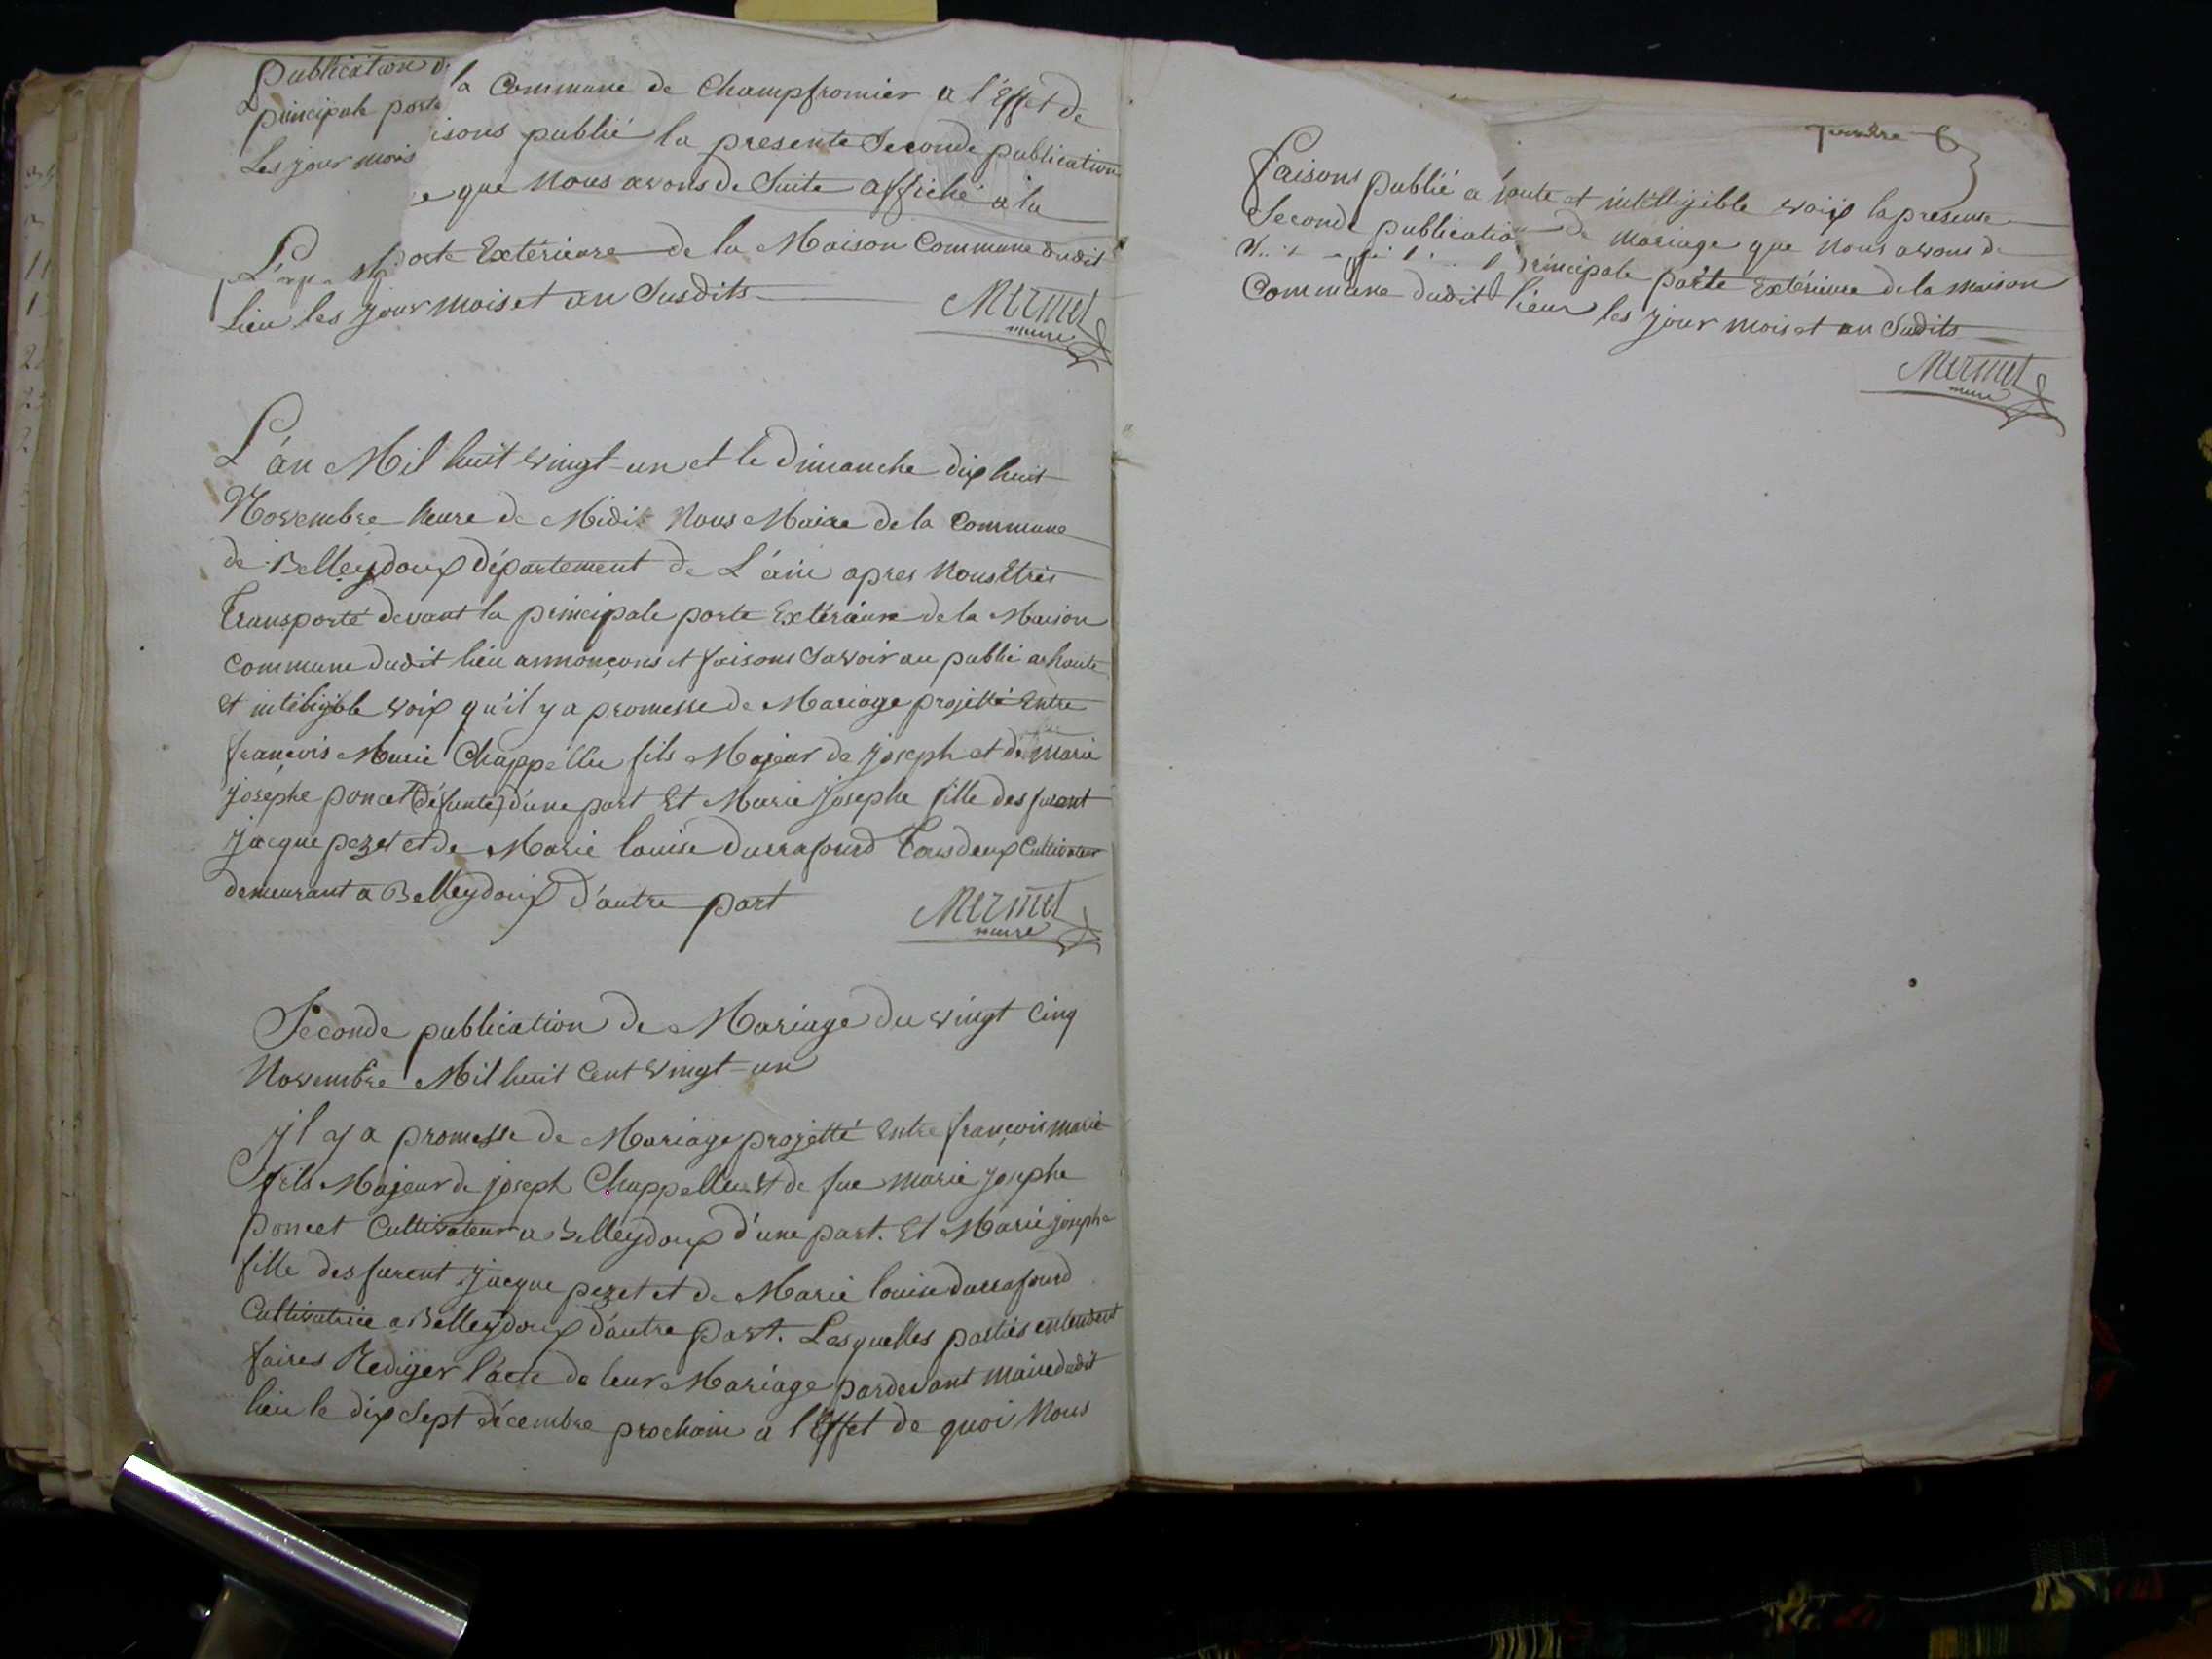 Publication d
principale porte
Les jour mois
la Commune de Champfromier a l'Effet de
isons publié la presente Seconde publication
e que Nous avons de Suite affiché a la
porte Extérieure de la Maison Commune dudit
Lieu les jour mois et an Susdits
Mermet
maire
L'án Mil huit vingt-un et le Dimanche dix huit
Novembre heure de Midi Nous Maire de la Commune
de Belleydoux département de L'ain apres Nous Etres
Transporté devant la principale porte Extérieure de la Maison
Commune dudit lieu annonçons et faisons Savoir au public a haute
et intéligible voix qu'il y a promesse de Mariage projetté Entre
françois Marie Chappellu fils Majeur de joseph et de marie
josephe poncet (défunte) d'une part Et Marie josephe fille des furent
jacque pezet et de Marie louise Durrafourd Tous deux Cultivateur
demeurant a Belleydoux d'autre part
Mermet
maire
Seconde publication de Mariage du vingt Cinq
Novembre Mil huit Cent vingt-un
Il y a promesse de Mariage projetté Entre françois marie
fils Majeur de joseph Chappellu Et de fue marie josephe
poncet Cultivateur a Belleydoux d'une part. Et Marie josephe
fille des furent jacque pezet et de Marie louise durrafourd
Cultivatrice a Belleydoux d'autre part. Lesquelles parties entendent
faires Rediger l'acte de leur Mariage pardevant maire dudit
lieu le dix Sept décembre prochain a l'Effet de quoi Nous
faisons publié a haute et intélligible voix la presente
Seconde publication de Mariage que Nous avons de
principale porte Extérieure de la maison
Commune dudit lieu les jour mois et an Sudits
Mermet
maire